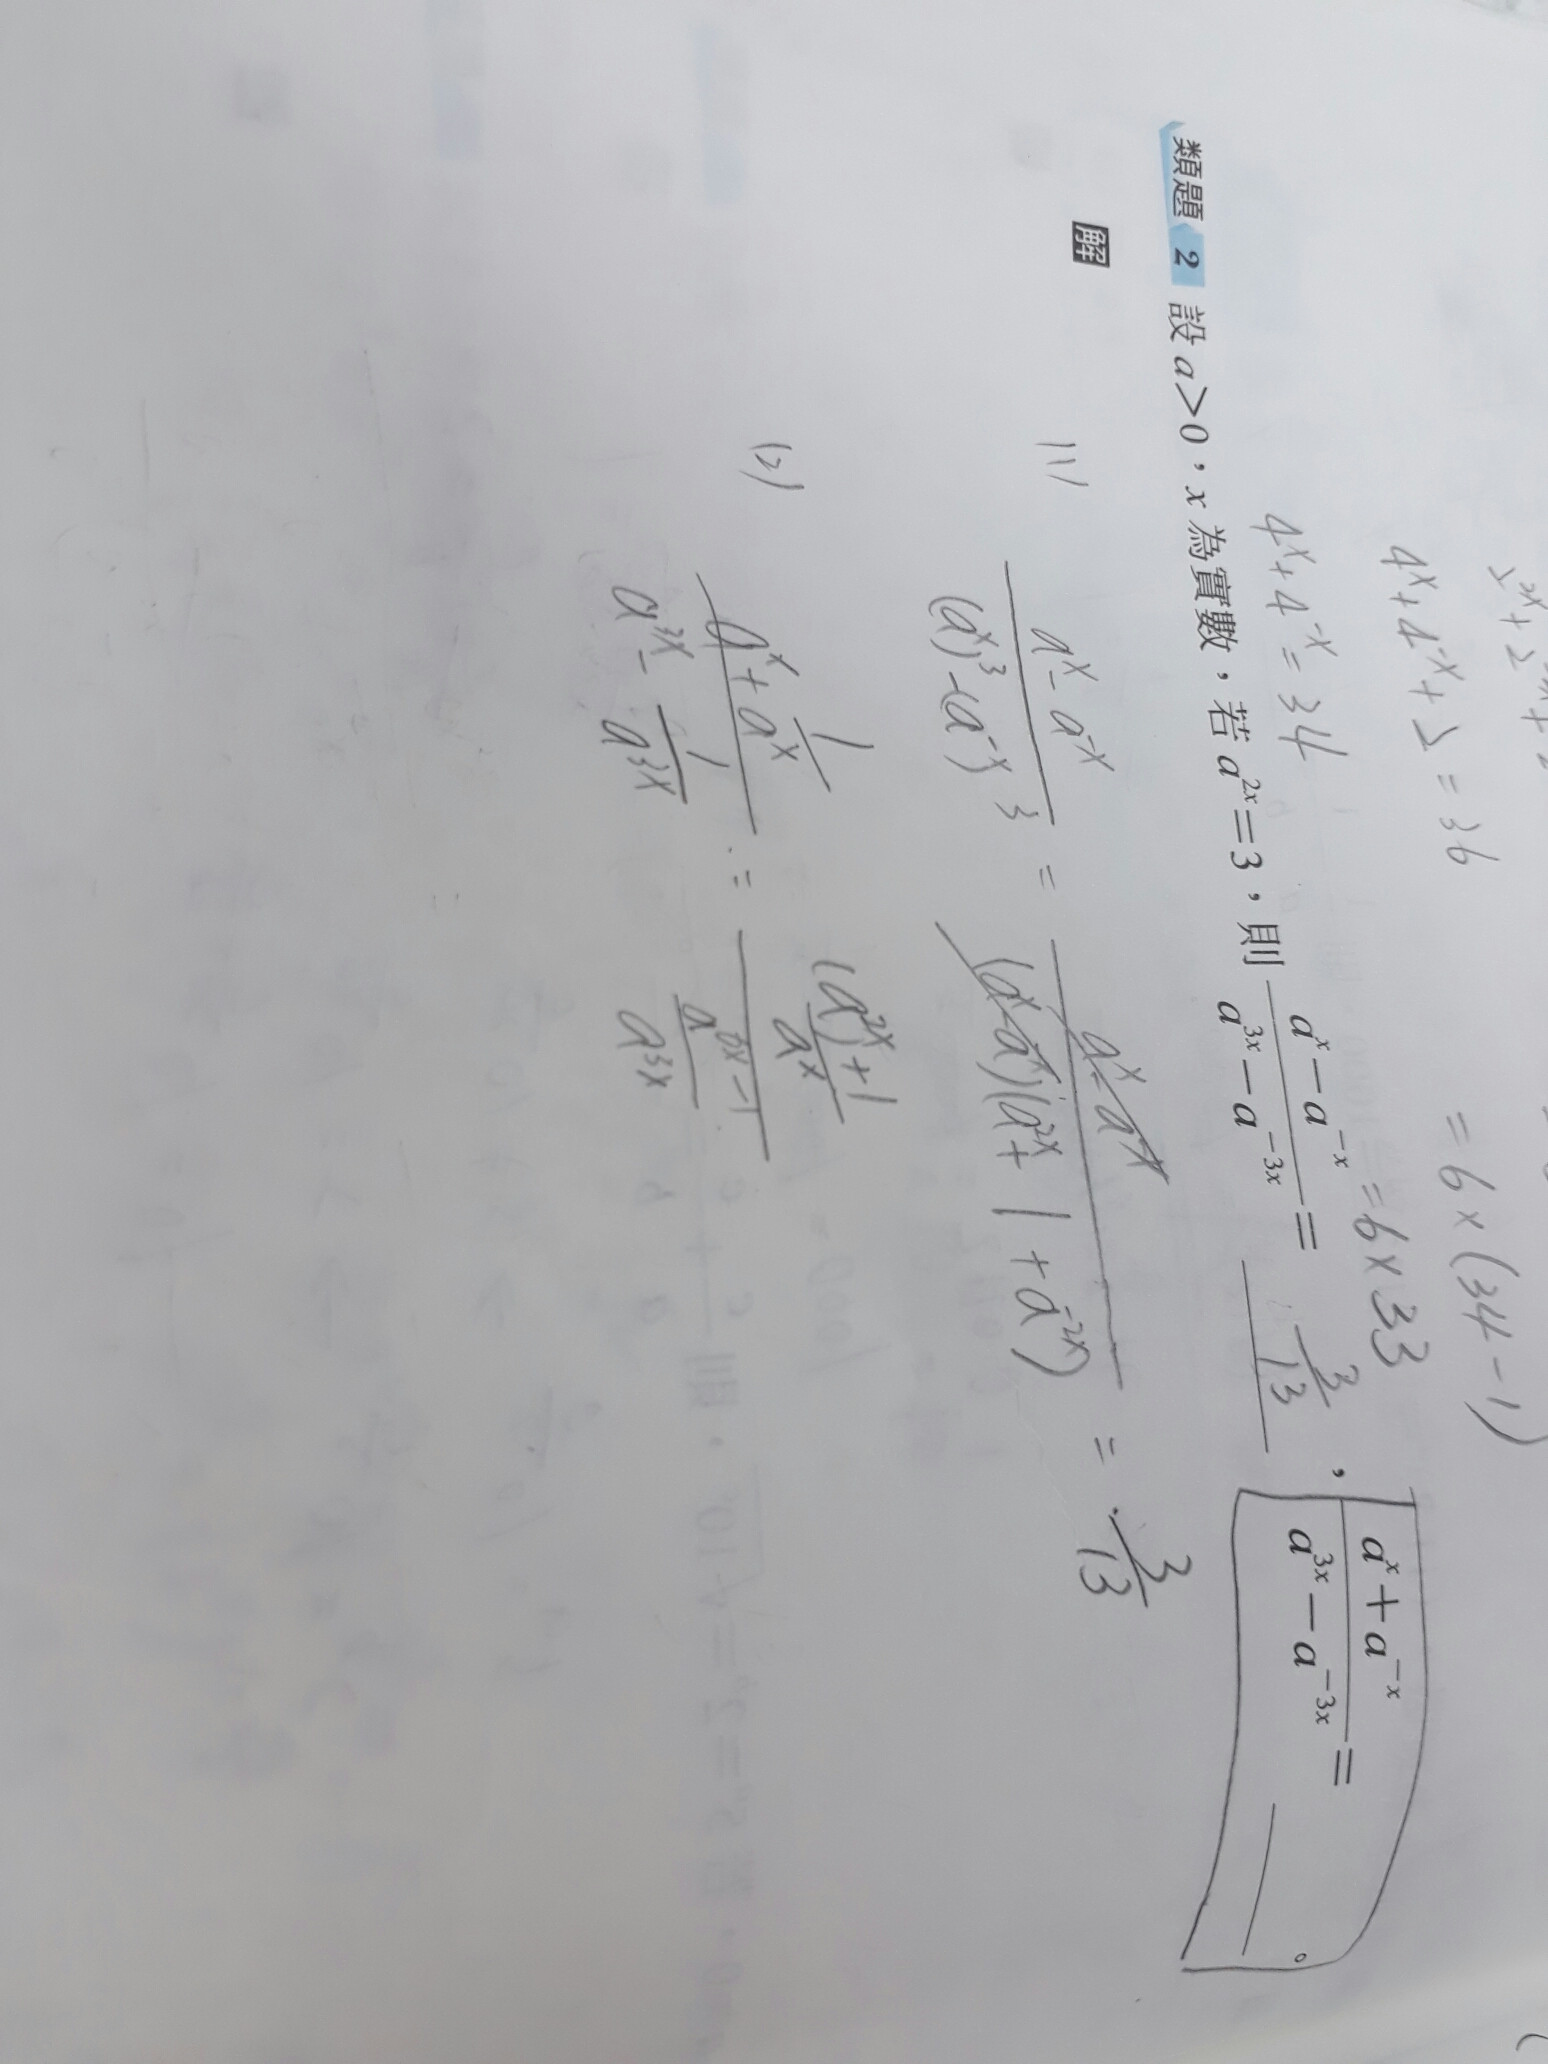 4^x+4^-x+2=36
=6×(34-1)
4^x+4^-x=34
=6×33
類題 2 設 a>0，x 為實數，若 a^2x=3，則 (a^x-a^-x)/(a^3x-a^-3x)= 3/13 ，(a^x+a^-x)/(a^3x-a^-3x)= ____ 。
解
(1) (a^x-a^-x)/((a^x)^3-(a^-x)^3) = (a^x-a^-x)/((a^x-a^-x)(a^2x+1+a^-2x)) = 3/13
(2) (a^x+1/a^x)/(a^3x-1/a^3x) = (((a^2x)+1)/a^x)/((a^6x-1)/a^3x)